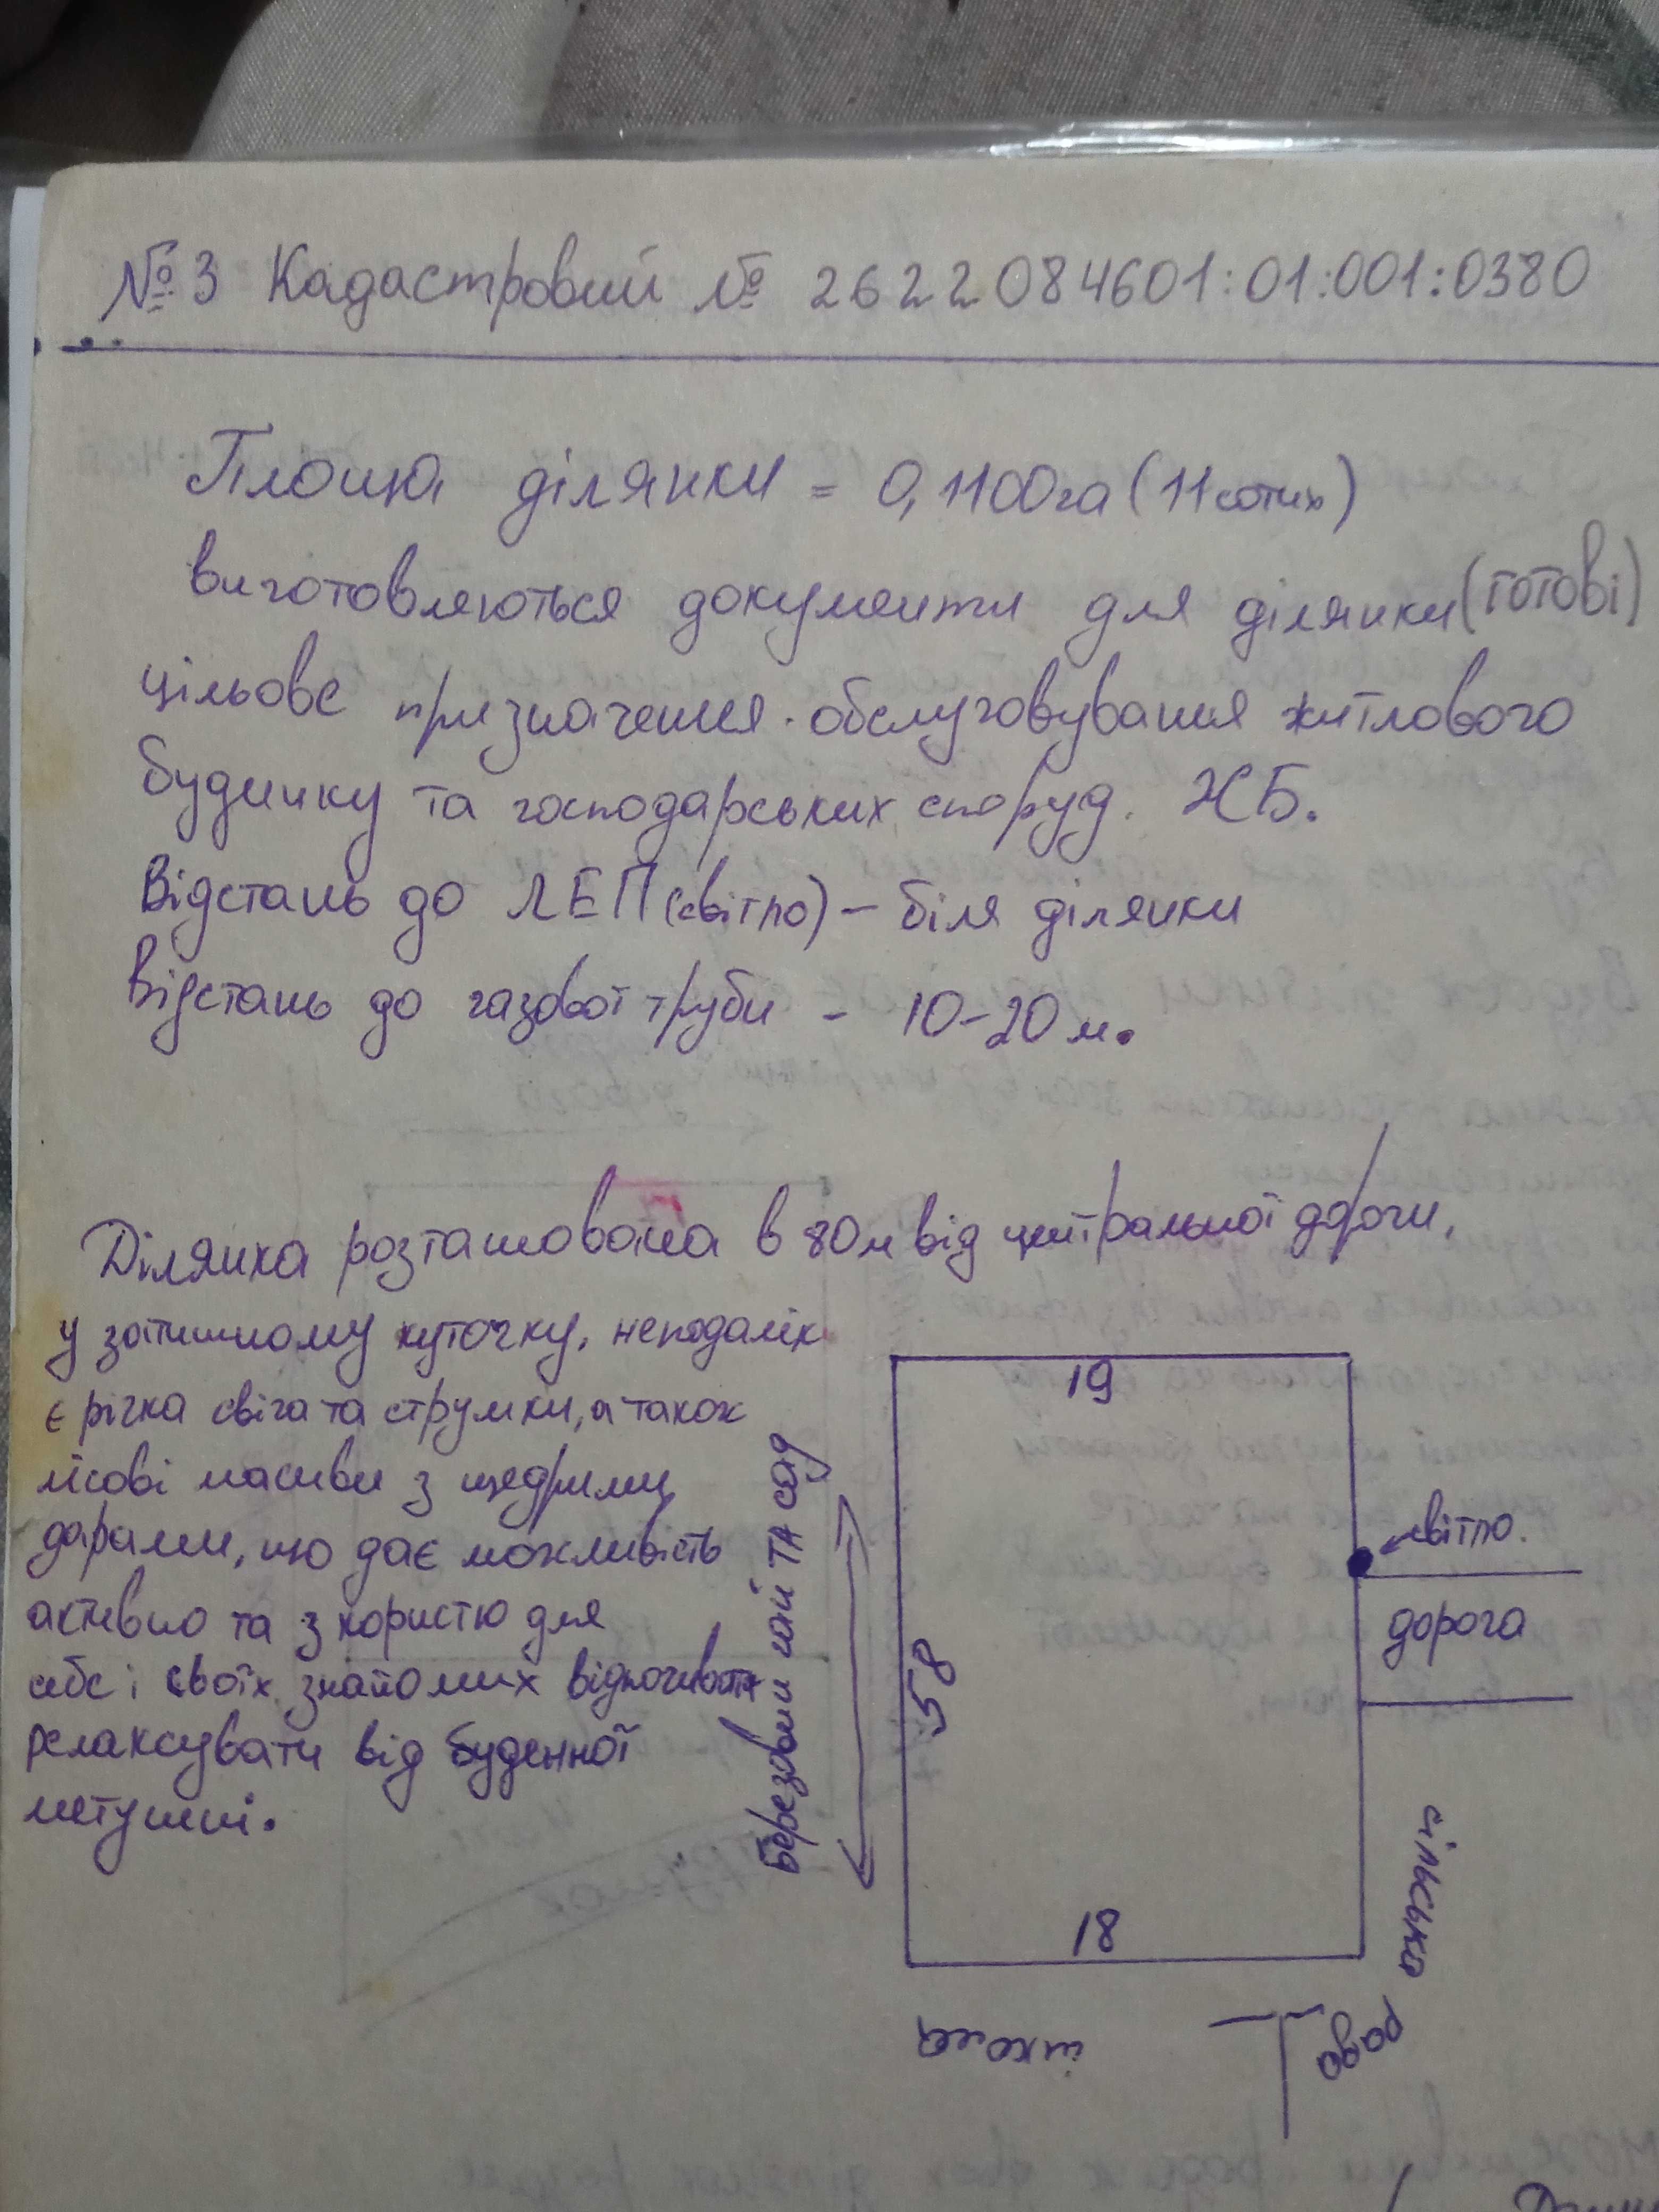 №3 Кадастровий № 2622084601:01:001:0380
Площа ділянки = 0,1100га (11 сотих)
виготовляються документи для ділянки (готові)
цільове призначення. обслуговування житлового
будинку та господарських споруд. ЖБ.
Відстань до ЛЕП (світло) – біля ділянки
Відстань до газової труби – 10-20 м.
Ділянка розташована в 80м від центральної дороги,
у затишному куточку, неподалік
є річка свіча та струмки, а також
лісові масиви з щедрими
дарами, що дає можливість
активно та з користю для
себе і своїх знайомих відпочивати
релаксувати від буденної
метушні.
19
58
18
Березовий гай ТА сад
світло.
дорога
сільська
рада
школа